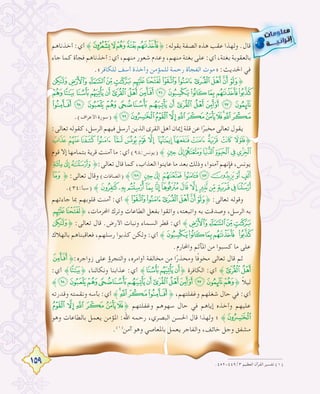 معلومات
قرآنية
قال. ولهذا عقب هذه الصفة بقوله: ﴿ فَأَخَذْنَاهُم بَغْتَةً وَهُمْ لَا يَشْعُرُونَ ﴾ أي: أخذناهم
بالعقوبة بغتة، أي: على بغتة منهم، وعدم شعور منهم، أي: أخذناهم فجأة كما جاء
في الحديث: «موت الفجأة رحمة للمؤمن وأخذة أسف للكافر».
﴿ وَلَوْ أَنَّ أَهْلَ الْقُرَىٰ آمَنُوا وَاتَّقَوْا لَفَتَحْنَا عَلَيْهِم بَرَكَاتٍ مِّنَ السَّمَاءِ وَالْأَرْضِ وَلَٰكِن
كَذَّبُوا فَأَخَذْنَاهُم بِمَا كَانُوا يَكْسِبُونَ ﴿٩٦﴾ أَفَأَمِنَ أَهْلُ الْقُرَىٰ أَن يَأْتِيَهُم بَأْسُنَا بَيَاتًا وَهُمْ
نَائِمُونَ ﴿٩٧﴾ أَوَأَمِنَ أَهْلُ الْقُرَىٰ أَن يَأْتِيَهُم بَأْسُنَا ضُحًى وَهُمْ يَلْعَبُونَ ﴿٩٨﴾ أَفَأَمِنُوا
مَكْرَ اللَّهِ فَلَا يَأْمَنُ مَكْرَ اللَّهِ إِلَّا الْقَوْمُ الْخَاسِرُونَ ﴿٩٩﴾ (سورة الأعراف).
يقول تعالى مخبرًا عن قلة إيمان أهل القرى الذين أرسل فيهم الرسل، كقوله تعالى:
﴿ فَلَوْلَا كَانَتْ قَرْيَةٌ آمَنَتْ فَنَفَعَهَا إِيمَانُهَا إِلَّا قَوْمَ يُونُسَ لَمَّا آمَنُوا كَشَفْنَا عَنْهُمْ عَذَابَ
الْخِزْيِ فِي الْحَيَاةِ الدُّنْيَا وَمَتَّعْنَاهُمْ إِلَىٰ حِينٍ ﴾ (يونس: ٩٨) أي: ما آمنت قرية بتمامها إلا قوم
يونس، فإنهم آمنوا، وذلك بعد ما عاينوا العذاب، كما قال تعالى: ﴿ وَأَرْسَلْنَاهُ إِلَىٰ مِائَةِ
أَلْفٍ أَوْ يَزِيدُونَ ﴿١٤٧﴾ فَآمَنُوا فَمَتَّعْنَاهُمْ إِلَىٰ حِينٍ ﴾ (الصافات) وقال تعالى: ﴿ وَمَا
أَرْسَلْنَا فِي قَرْيَةٍ مِّن نَّذِيرٍ إِلَّا قَالَ مُتْرَفُوهَا إِنَّا بِمَا أُرْسِلْتُم بِهِ كَافِرُونَ ﴾ (سبأ: ٣٤).
وقوله تعالى: ﴿ وَلَوْ أَنَّ أَهْلَ الْقُرَىٰ آمَنُوا وَاتَّقَوْا ﴾ أي: آمنت قلوبهم بما جاءتهم
به الرسل، وصدقت به واتبعته، واتقوا بفعل الطاعات وترك المحرمات، ﴿ لَفَتَحْنَا عَلَيْهِم
بَرَكَاتٍ مِّنَ السَّمَاءِ وَالْأَرْضِ ﴾ أي: قطر السماء ونبات الارض. قال تعالى: ﴿ وَلَٰكِن
كَذَّبُوا فَأَخَذْنَاهُم بِمَا كَانُوا يَكْسِبُونَ ﴾ أي: ولكن كذبوا رسلهم، فعاقبناهم بالهلاك
على ما كسبوا من المآثم والمحارم.
ثم قال تعالى مخوفًا ومحذرًا من مخالفة أوامره، والتجرؤ على زواجره: ﴿ أَفَأَمِنَ
أَهْلُ الْقُرَىٰ ﴾ أي: الكافرة ﴿ أَن يَأْتِيَهُم بَأْسُنَا ﴾ أي: عذابنا ونكالنا، ﴿ بَيَاتًا ﴾ أي:
ليلًا ﴿ وَهُمْ نَائِمُونَ ﴿٩٧﴾ أَوَأَمِنَ أَهْلُ الْقُرَىٰ أَن يَأْتِيَهُم بَأْسُنَا ضُحًى وَهُمْ يَلْعَبُونَ ﴿٩٨﴾
﴾ أي: في حال شغلهم وغفلتهم، ﴿ أَفَأَمِنُوا مَكْرَ اللَّهِ ﴾ أي: بأسه ونقمته وقدرته
عليهم وأخذه إياهم في حال سهوهم وغفلتهم ﴿ فَلَا يَأْمَنُ مَكْرَ اللَّهِ إِلَّا الْقَوْمُ
الْخَاسِرُونَ ﴾ ولهذا قال الحسن البصري، رحمه الله: المؤمن يعمل بالطاعات وهو
مشفق وجل خائف، والفاجر يعمل بالمعاصي وهو آمن(١).
(١) تفسير القرآن العظيم ٣ /
١٥٩